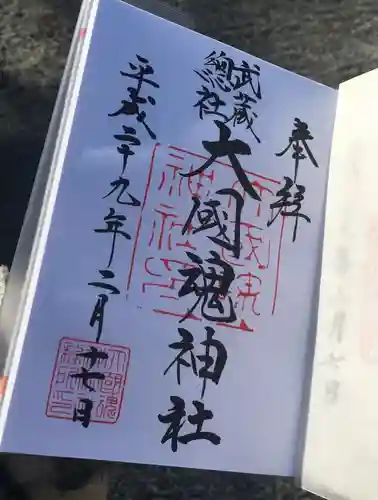 奉拝
武蔵
總社
大國魂神社
平成二十九年二月十七日